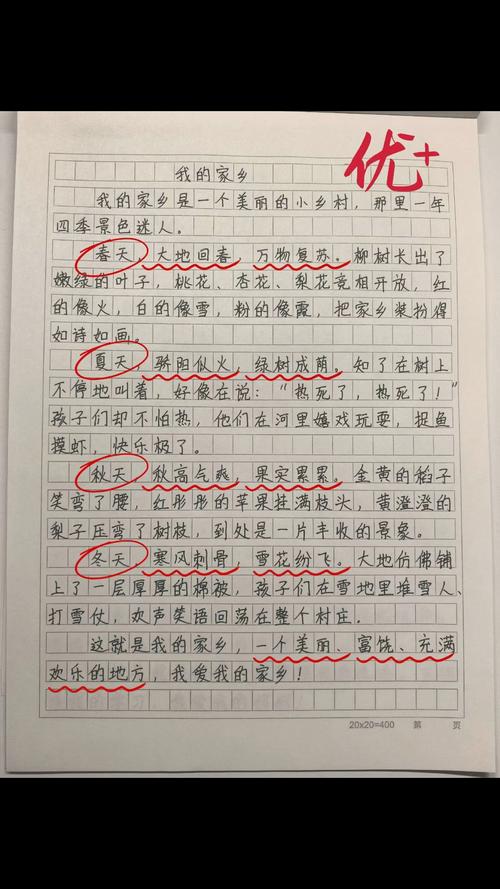 优+
我的家乡
我的家乡是一个美丽的小乡村，那里一年
四季景色迷人。
春天，大地回春，万物复苏。柳树长出了
嫩绿的叶子，桃花、杏花、梨花竞相开放，红
的像火，白的像雪，粉的像霞，把家乡装扮得
如诗如画。
夏天，骄阳似火，绿树成荫。知了在树上
不停地叫着，好像在说：“热死了，热死了！”
孩子们却不怕热，他们在河里嬉戏玩耍，捉鱼
摸虾，快乐极了。
秋天，秋高气爽，果实累累。金黄的稻子
笑弯了腰，红彤彤的苹果挂满枝头，黄澄澄的
梨子压弯了树枝，到处是一片丰收的景象。
冬天，寒风刺骨，雪花纷飞。大地仿佛铺
上了一层厚厚的棉被，孩子们在雪地里堆雪人、
打雪仗，欢声笑语回荡在整个村庄。
这就是我的家乡，一个美丽、富饶、充满
欢乐的地方，我爱我的家乡！
20x20=400 第 页